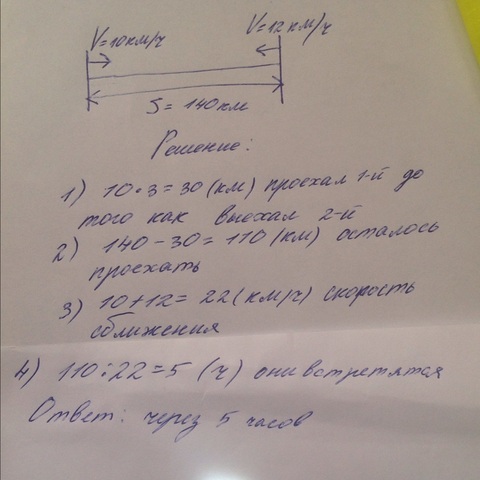 V=10км/ч V=12км/ч
S= 140км
Решение:
1) 10·3=30(км) проехал 1-й до
того как выехал 2-й
2) 140-30=110(км) осталось
проехать
3) 10+12=22(км/ч) скорость
сближения
4) 110:22=5 (ч) они встретятся
Ответ: через 5 часов